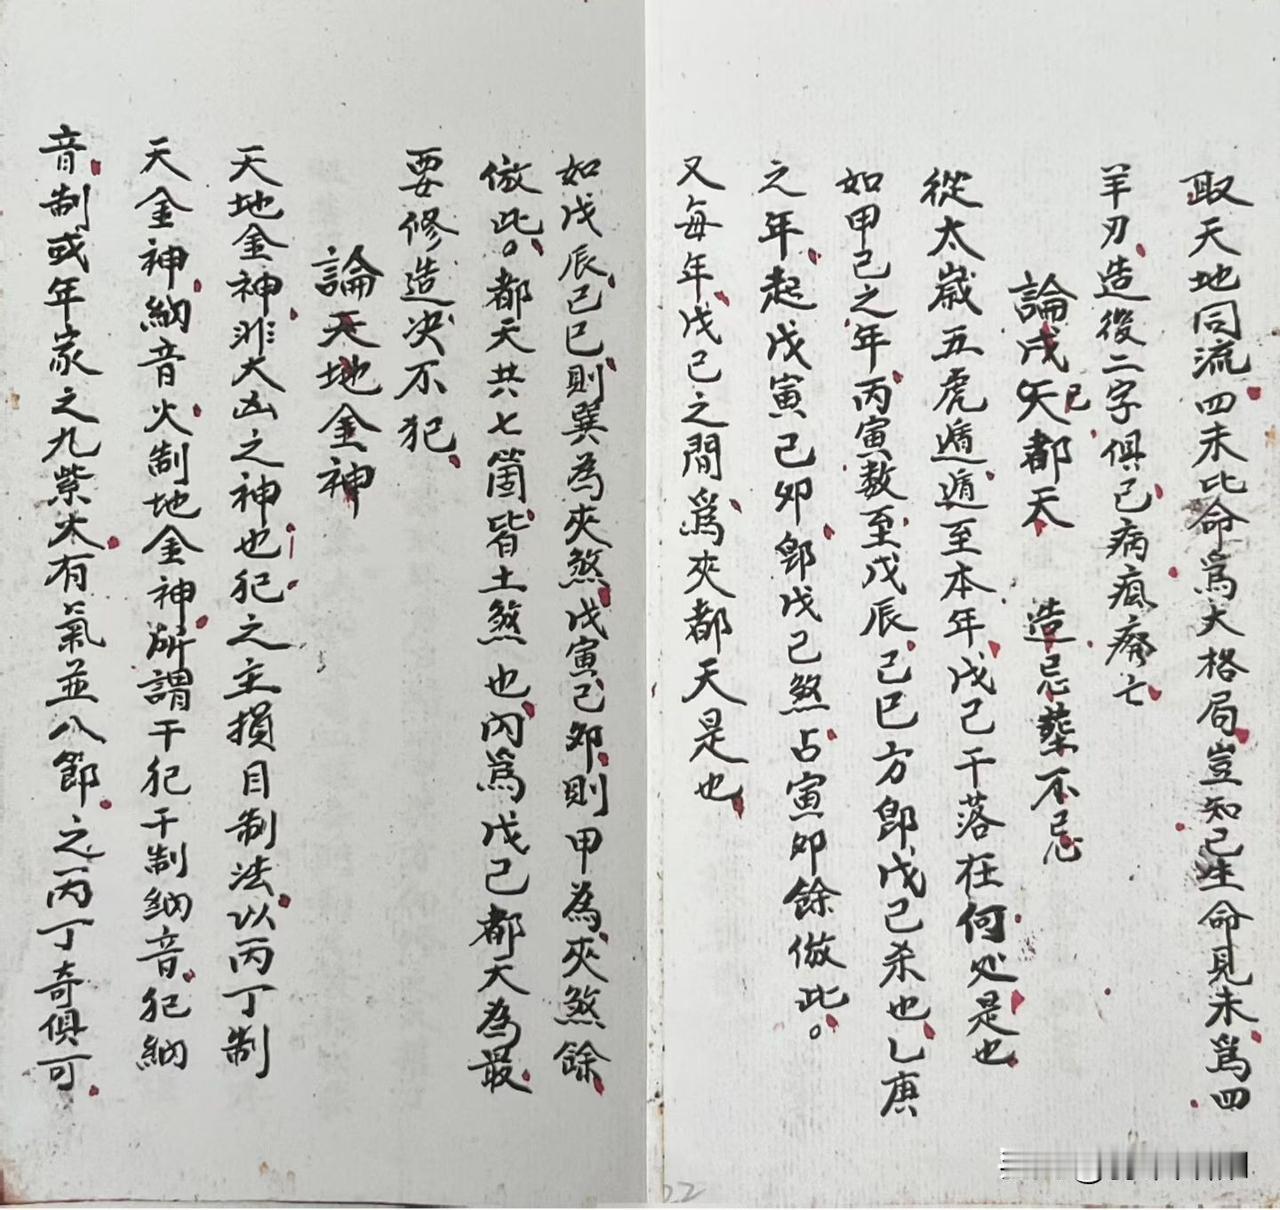 取天地同流四未比命爲大格局豈知己生命見未爲四
羊刃造後二字俱已病瘋癆亡
論戊己矢都天 造忌葬不忌
從太歲五虎遁遁至本年戊己干落在何処是也
如甲己之年丙寅数至戊辰己巳方即戊己杀也乙庚
之年起戊寅己卯即戊己煞占寅卯餘倣此。
又每年戊己之間爲夾都天是也
如戊辰己巳則巽為夾煞戊寅己卯則甲為夾煞餘
倣此。都天共七箇皆土煞也内爲戊己都天為最
要修造决不犯
論天地金神
天地金神非大凶之神也犯之主損目制法以丙丁制
天金神納音火制地金神所謂干犯干制納音犯納
音制或年家之九紫火有氣並八節之丙丁奇俱可
22